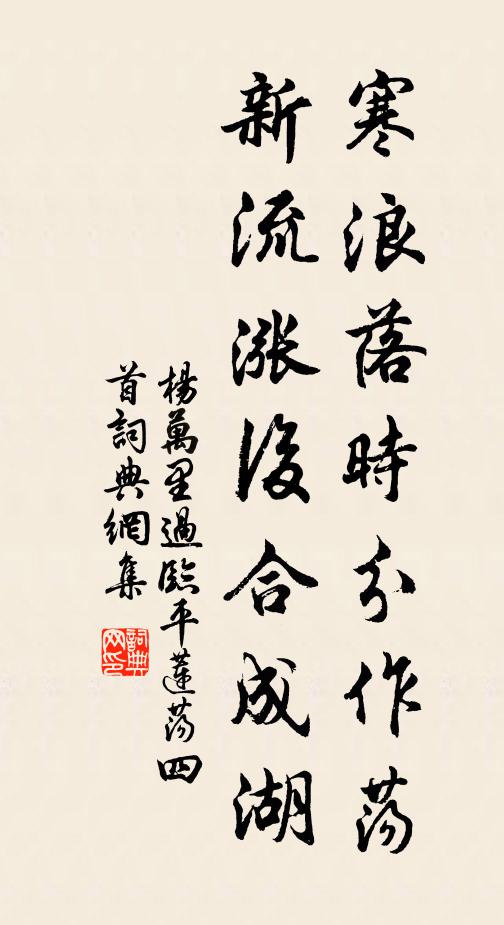 寒浪落時分作蕩
新流漲後合成湖
楊萬里過臨平蓮蕩四
首詞典網集
詞典網印